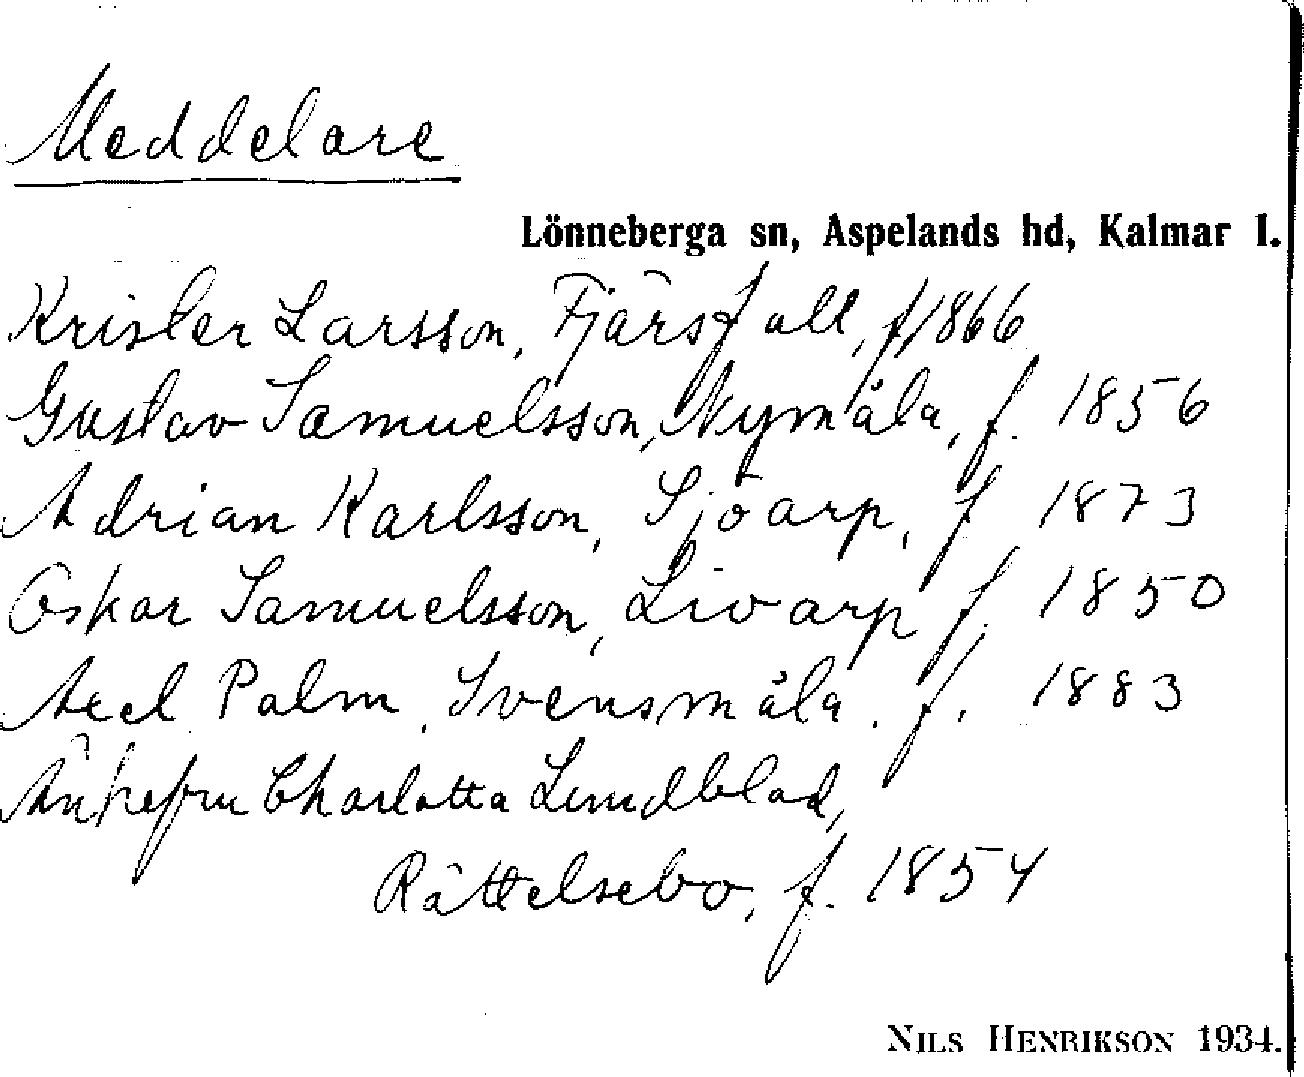 Meddelare
Lönneberga sn, Aspelands hd, Kalmar l.
Krister Larsson, Fjärsfall, f, 1866
Gustav Samuelsson, Nymåla, f. 1856
Adrian Karlsson, Sjöarp, f 1873
Oskar Samuelsson, Livarp f. 1850
Axel Palm, Svensmåla, f. 1883
Änkefru Charlotta Lundblad,
Rättelsebo, f. 1854
NILS HENRIKSON 1934.